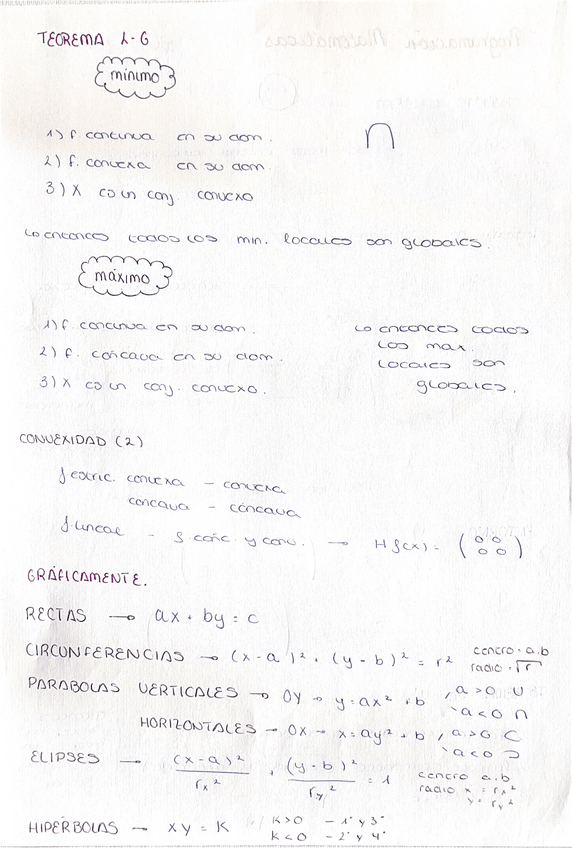 TEOREMA L-G
mínimo
1) f. continua en su dom.
2) f. convexa en su dom.
3) X es un conj. convexo
↳ entonces todos los min. locales son globales.
máximo
1) f. continua en su dom.
2) f. cóncava en su dom.
3) X es un conj. convexo.
↳ entonces todos
los max.
locales son
globales.
CONVEXIDAD (2)
f. estric. convexa – convexa
concava – cóncava
f. lineal – f. cónc. y conv. → Hf(x) = (0 0
0 0)
GRÁFICAMENTE.
RECTAS → ax + by = c
CIRCUNFERENCIAS → (x-a)² + (y-b)² = r² centro = a.b
radio = √r
PARABOLAS VERTICALES → OY → y = ax² + b , a>0 ∪
a<0 ∩
HORIZONTALES → OX → x = ay² + b , a>0 ⊂
a<0 ⊃
ELIPSES → (x-a)²/rx² + (y-b)²/ry² = 1 centro a.b
radio x = rx²
y = ry²
HIPÉRBOLAS → xy = K K>0 – 1º y 3º
K<0 – 2º y 4º